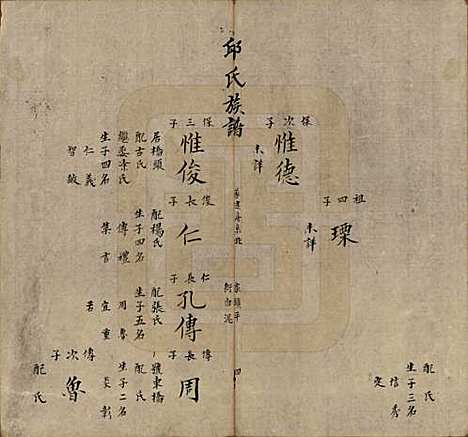 邱氏族譜
配氏
生子三名
信 秀
祖四子
瑮
未詳
保次子
惟德
未詳
四
保三子
惟俊
居橋頭
配古氏
繼娶李氏
生子四名
仁 義
智
俊長子
仁
配楊氏
生子四名
傳 禮
言
仁長子
孔傳
配張氏
生子五名
周 魯
宜 重
若
傳長子
周
號東橋
配氏
生子二名
彰
傳次子
魯
配氏